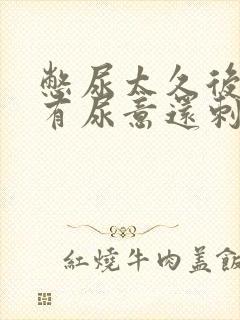 憋尿太久後
有尿意還刺
紅燒牛肉蓋飯